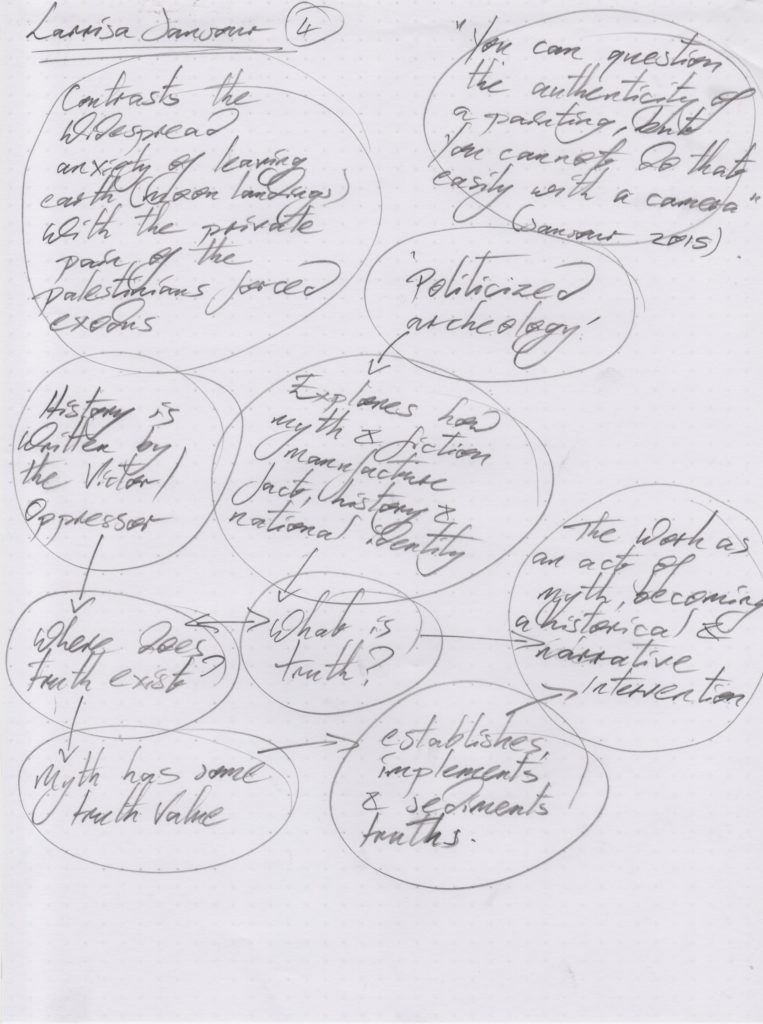 Larrisa Sansour 4
Contrasts the
widespread
anxiety of leaving
earth (moon landings)
with the private
pain, of the
palestinians forced
exodus
"You can question
the authenticity of
a painting, but
you cannot do that
easily with a camera"
(Sansour 2015)
'Politicized
archeology'
History is
written by
the Victor/
Oppressor
Explores how
myth & fiction
manufacture
fact, history &
national identity
Where does
truth exist?
What is
truth?
The work as
an act of
myth, becoming
a historical &
narrative
intervention
Myth has some
truth value
establishes,
implements
& sediments
truths.